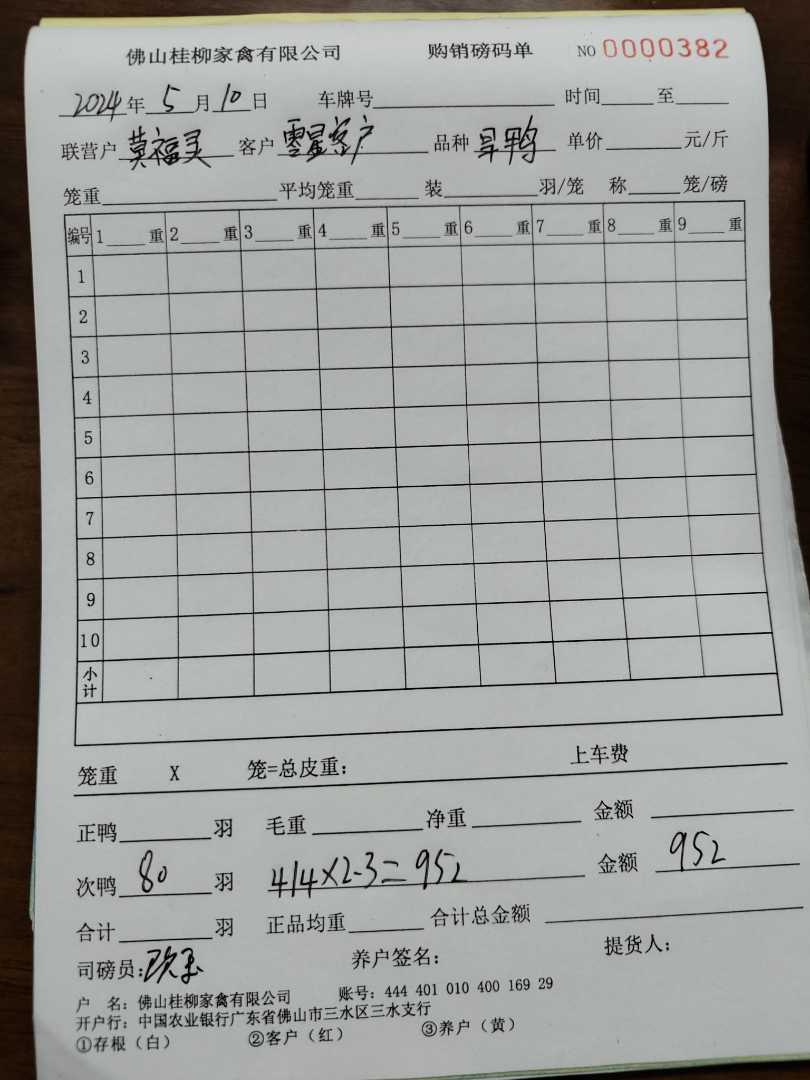 佛山桂柳家禽有限公司 购销磅码单 NO 0000382
2024年5月10日 车牌号 时间 至
联营户 莫福灵 客户 零星客户 品种 旱鸭 单价 元/斤
笼重 平均笼重 装 羽/笼 称 笼/磅
编号 1 重 2 重 3 重 4 重 5 重 6 重 7 重 8 重 9 重
1
2
3
4
5
6
7
8
9
10
小计
笼重 X 笼=总皮重: 上车费
正鸭 羽 毛重 净重 金额
次鸭 80 羽 414×2.3=952 金额 952
合计 羽 正品均重 合计总金额
司磅员: 养户签名: 提货人:
户 名: 佛山桂柳家禽有限公司 账号: 444 401 010 400 169 29
开户行: 中国农业银行广东省佛山市三水区三水支行
①存根(白) ②客户(红) ③养户(黄)